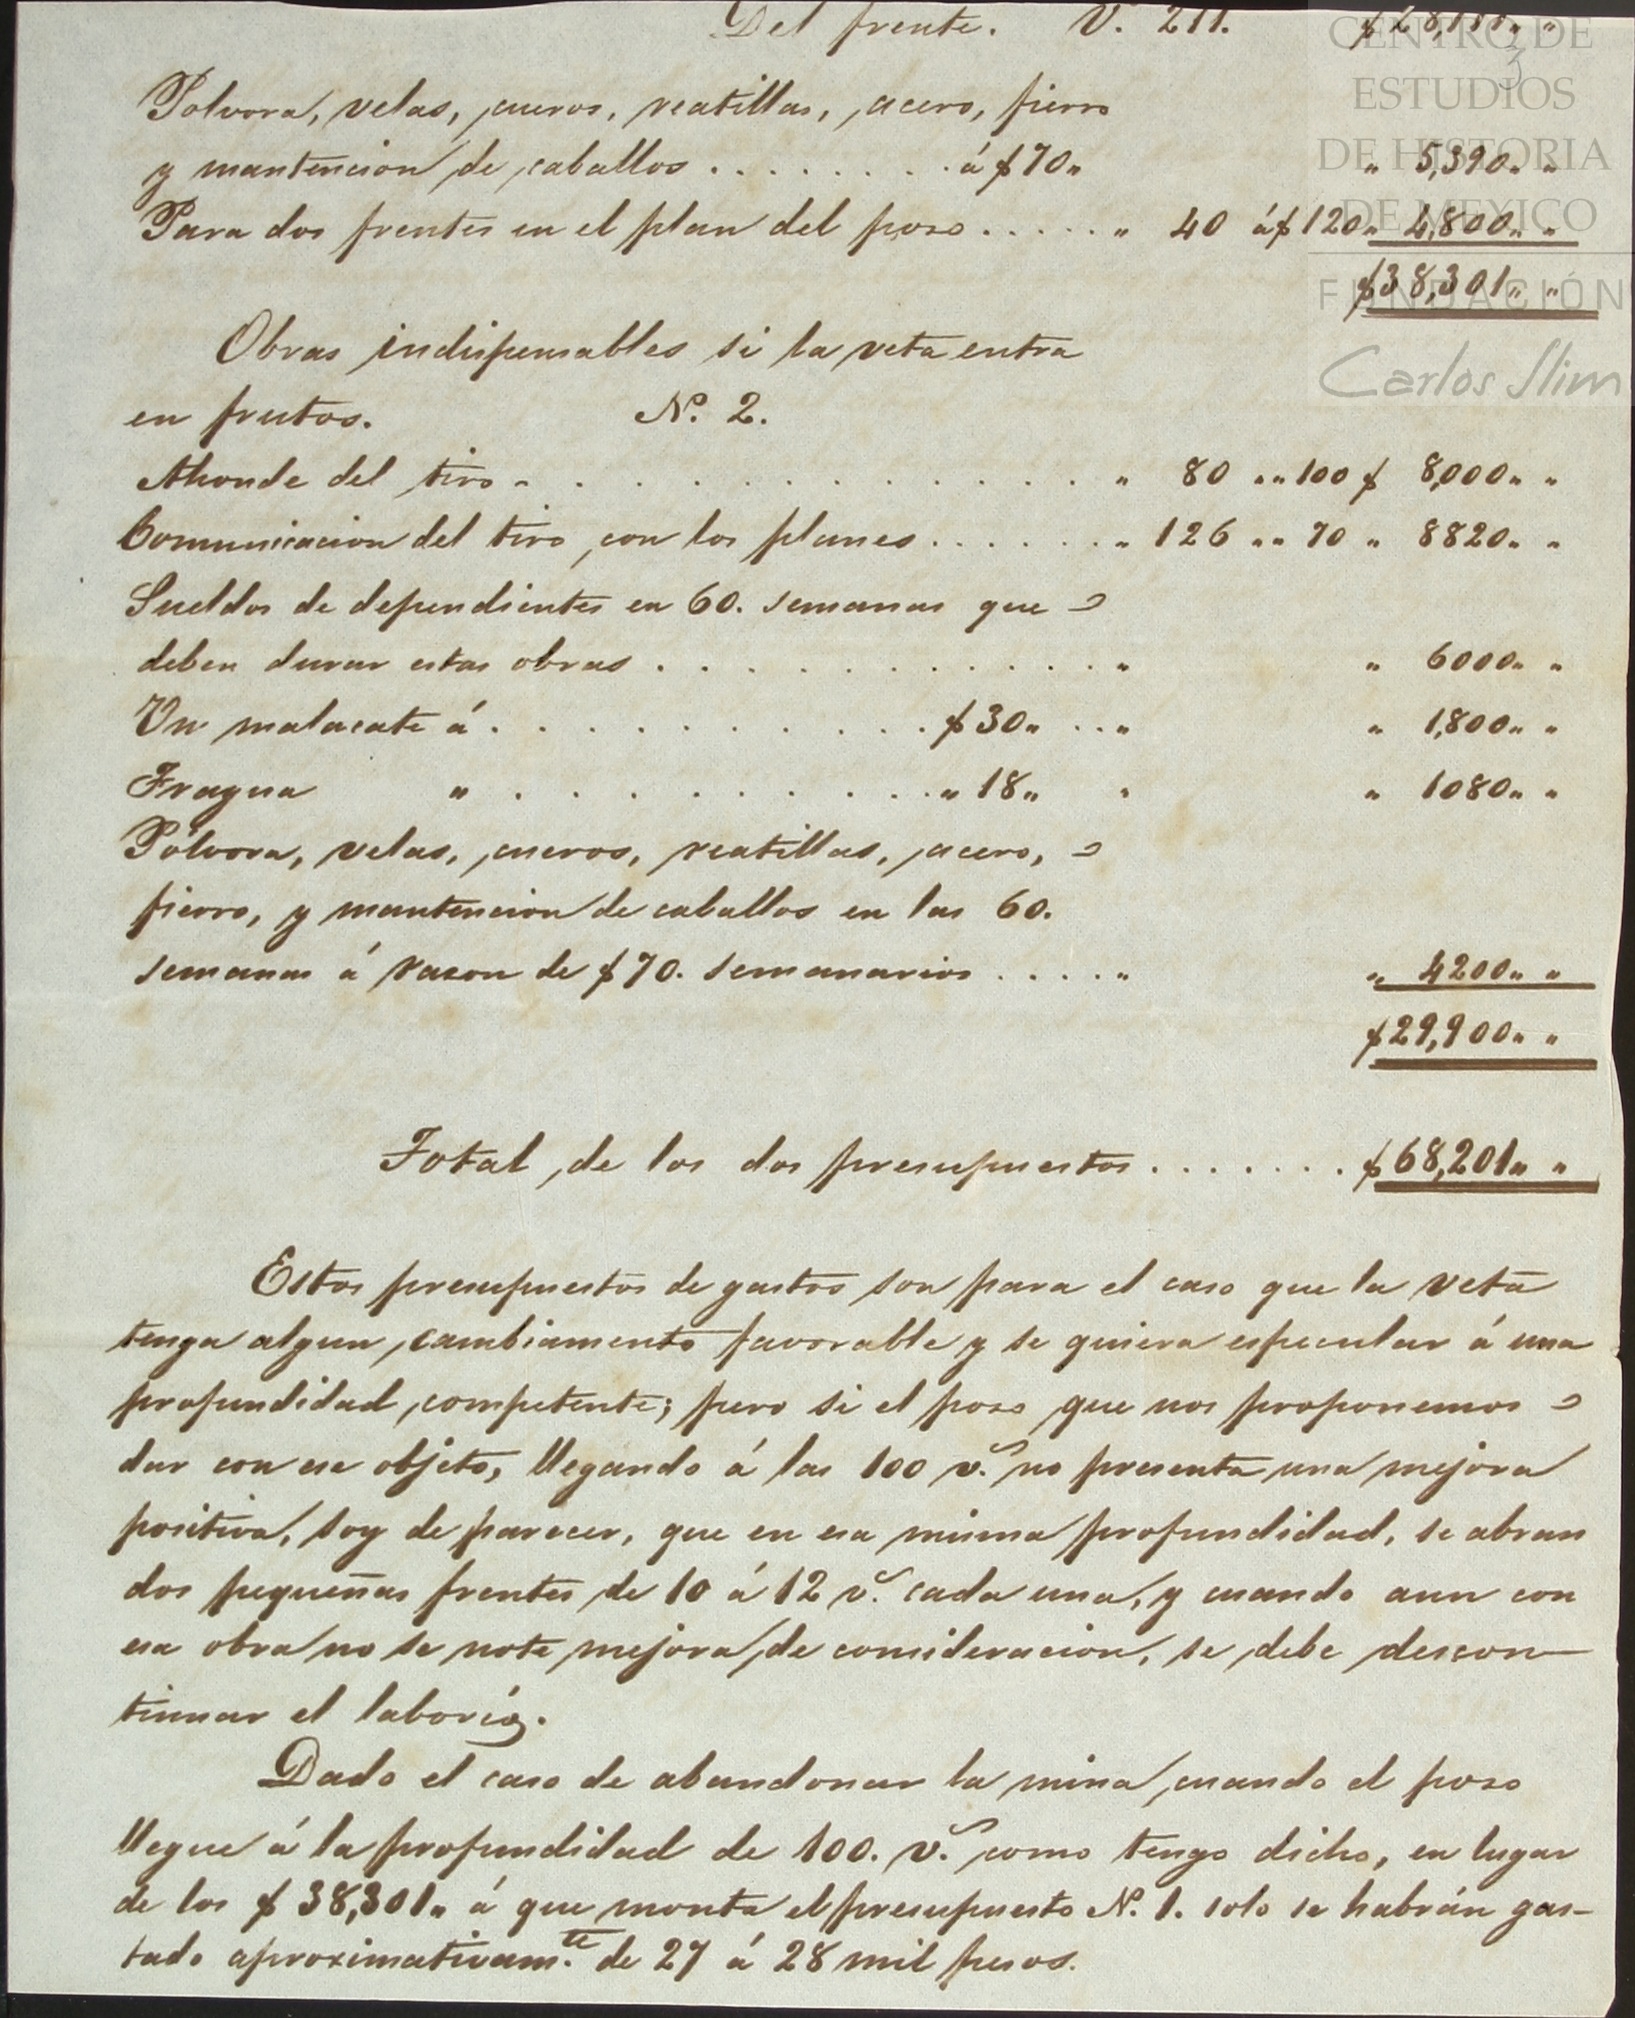 Del frente. V. 211. $28,111" "
3
CENTRO DE
ESTUDIOS
DE HISTORIA
DE MÉXICO
FUNDACIÓN
Carlos Slim
Polvora, velas, cueros, reatillas, acero, fierro
y mantencion de caballos . . . . . . . . á $70" " 5,390" "
Para dos frentes en el plan del poso . . . . . " 40 á $120" 4,800" "
$38,301" "
Obras indispensables si la veta entra
en frutos. Nº. 2.
Ahonde del tiro . . . . . . . . . . . . . . " 80 " " 100 $ 8,000" "
Comunicacion del tiro con los planes . . . . . . " 126 " " 70 " 8820" "
Sueldos de dependientes en 60. semanas que
deben durar estas obras . . . . . . . . . . . " " 6000" "
Un malacate á . . . . . . . . . $30" . . " " 1,800" "
Fragua " . . . . . . . . " 18" " " 1080" "
Pólvora, velas, cueros, reatillas, acero,
fierro, y mantencion de caballos en las 60.
semanas á razon de $70. semanarios . . . . " " 4200" "
$29,900" "
Total de los dos presupuestos . . . . . . . $68,201" "
Estos presupuestos de gastos son para el caso que la veta
tenga algun cambiamento favorable y se quiera especular á una
profundidad competente; pero si el poso que nos proponemos
dar con ese objeto, llegando á las 100 v.s no presenta una mejora
positiva, soy de parecer, que en esa misma profundidad, se abran
dos pequeñas frentes de 10 á 12 v.s cada una, y cuando aun con
esa obra no se note mejora de consideracion, se debe descon-
tinuar el laborío.
Dado el caso de abandonar la mina cuando el poso
llegue á la profundidad de 100. v.s como tengo dicho, en lugar
de los $38,301" á que monta el presupuesto Nº. 1. solo se habrán gas-
tado aproximativam.te de 27 á 28 mil pesos.